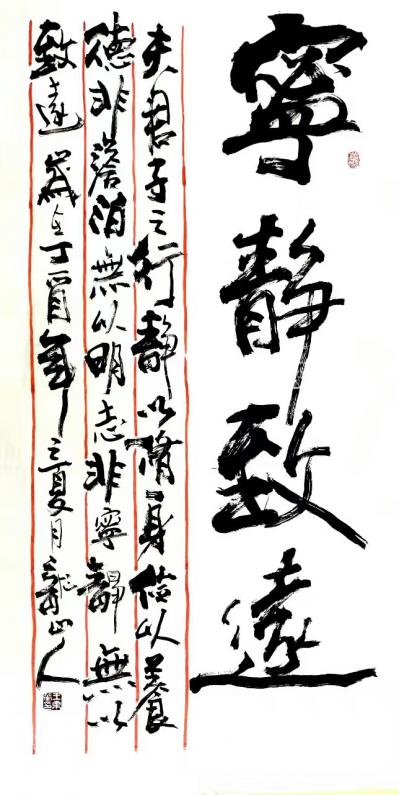 寧靜致遠
夫君子之行靜以脩身儉以養
德非澹泊無以明志非寧靜無以
致遠歲在丁酉年之夏月龍山人